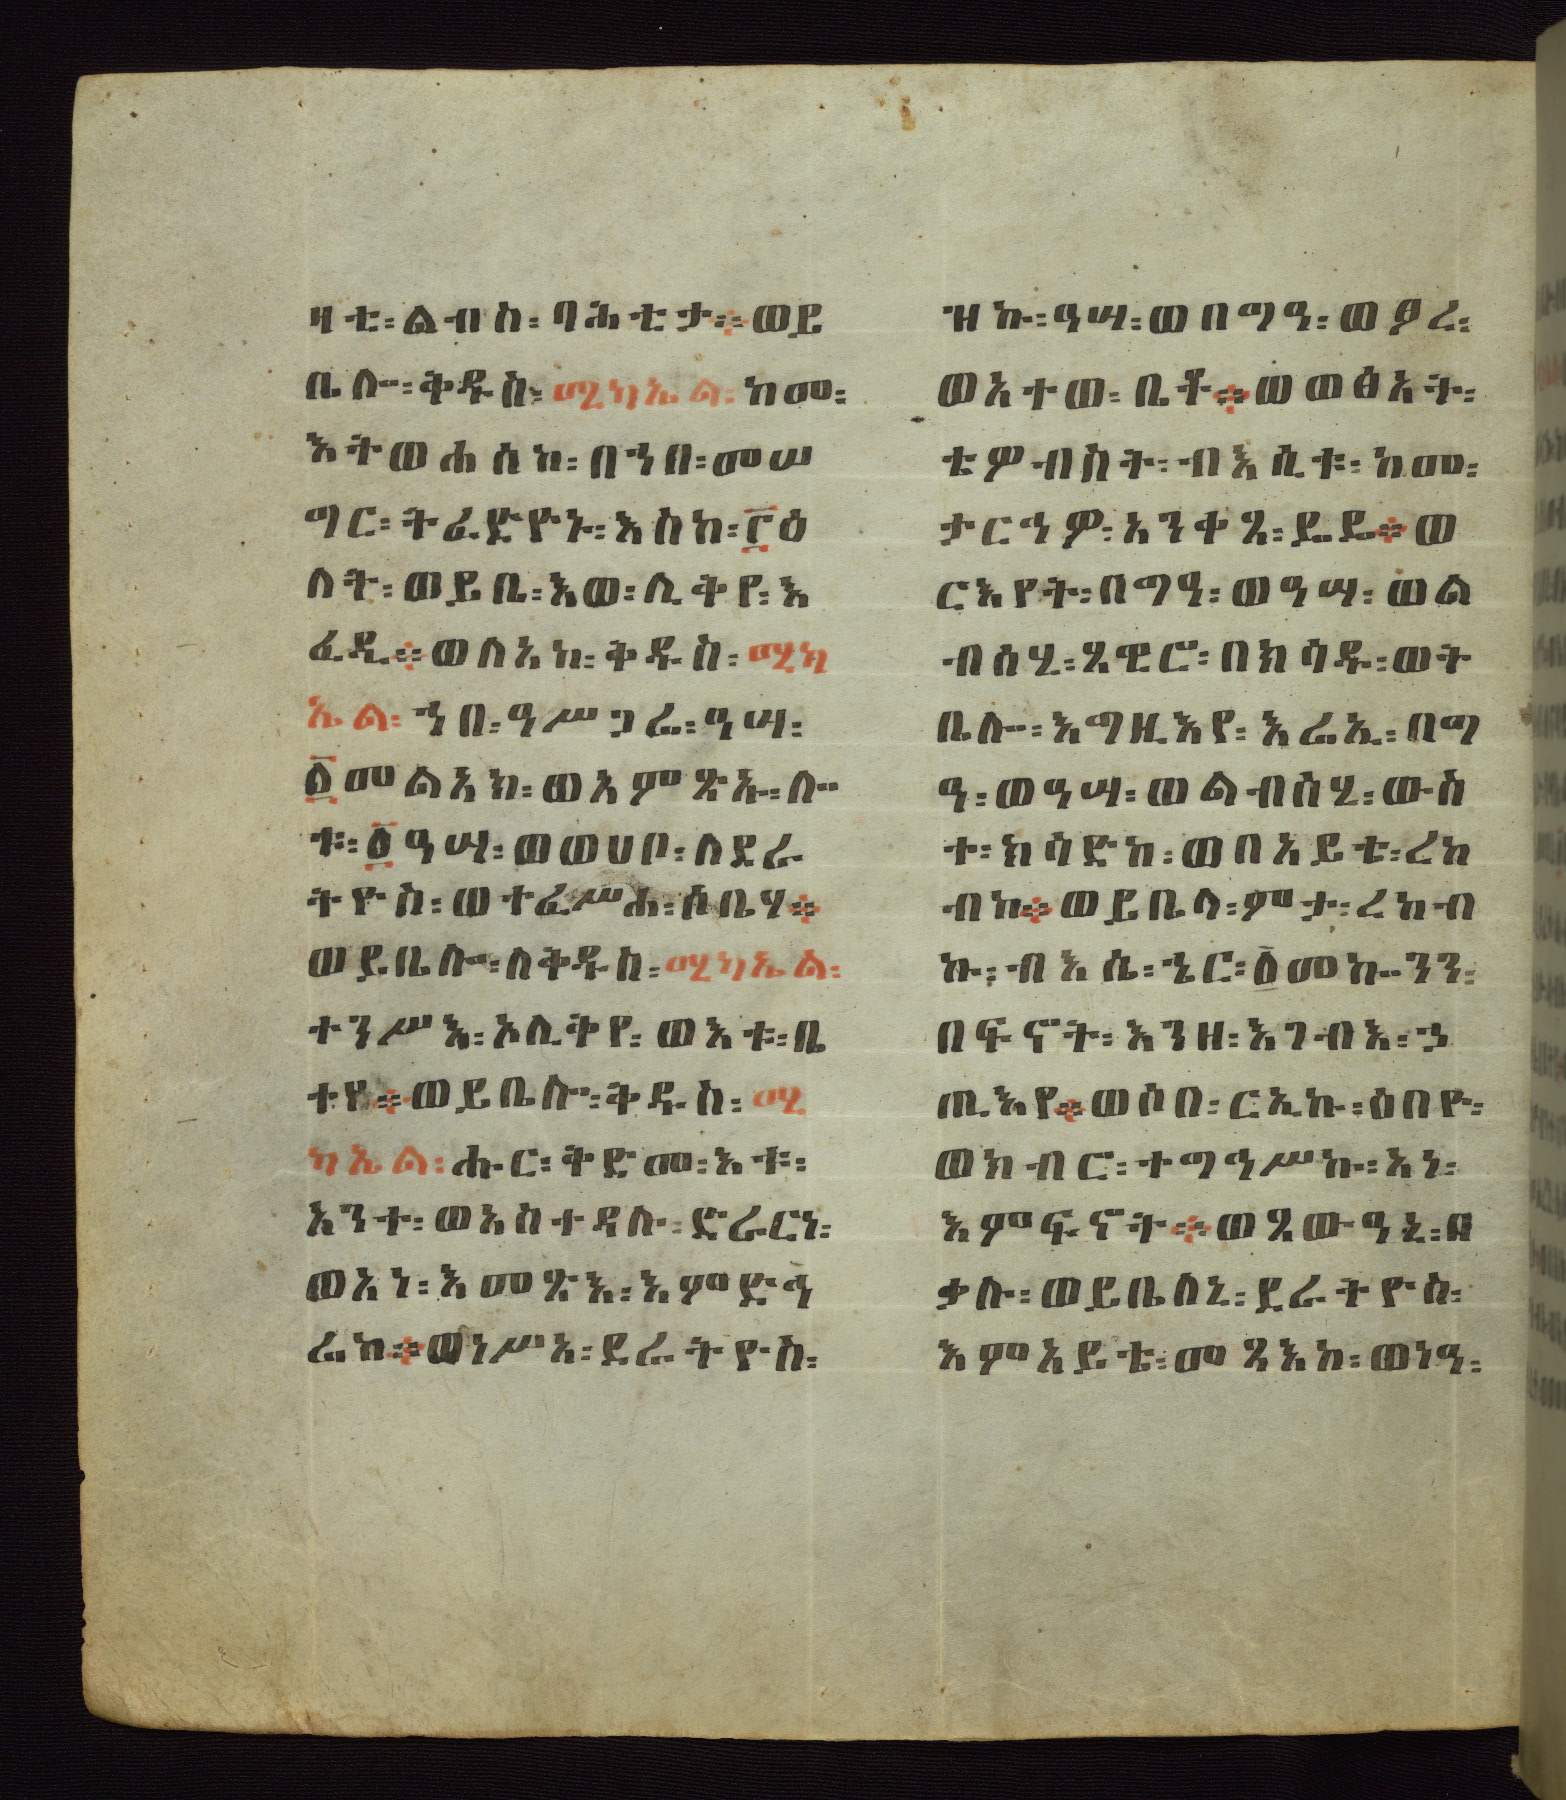 ዛቲ፡ ልብስ፡ ባሕቲታ። ወይ
ቤሎ፡ ቅዱስ፡ ሚካኤል፡ ከመ፡
እትወሐሰከ፡ በኀበ፡ መሠ
ግር፡ ትፈድዮኑ፡ እስከ፡ ፫ዕ
ለት፡ ወይቤ፡ እወ፡ ሊቅየ፡ እ
ፈዲ። ወለአከ፡ ቅዱስ፡ ሚካ
ኤል፡ ኀበ፡ ዓሥጋሬ፡ ዓሣ፡
፩መልአክ፡ ወአምጽኡ፡ ሎ
ቱ፡ ፩ዓሣ፡ ወወሀቦ፡ ለደራ
ትዮስ፡ ወተፈሥሐ፡ ሶቤሃ።
ወይቤሎ፡ ለቅዱስ፡ ሚካኤል፡
ተንሥእ፡ ኦሊቅየ፡ ወእቱ፡ ቤ
ተየ። ወይቤሎ፡ ቅዱስ፡ ሚ
ካኤል፡ ሑር፡ ቅድመ፡ እቱ፡
አንተ፡ ወአስተዳሉ፡ ድራርነ፡
ወአነ፡ እመጽእ፡ እምድኅ
ሬከ። ወነሥአ፡ ደራትዮስ፡
ዝኩ፡ ዓሣ፡ ወበግዓ፡ ወፆረ፡
ወአተወ፡ ቤቶ። ወወፅአት፡
ቴዎብስት፡ ብእሲቱ፡ ከመ፡
ታርኅዎ፡ አንቀጸ፡ ደዴ። ወ
ርእየት፡ በግዓ፡ ወዓሣ፡ ወል
ብሰሂ፡ ጸዊሮ፡ በክሳዱ፡ ወት
ቤሎ፡ እግዚእየ፡ እሬኢ፡ በግ
ዓ፡ ወዓሣ፡ ወልብስሂ፡ ውስ
ተ፡ ክሳድከ፡ ወበአይቴ፡ ረከ
ብከ። ወይቤላ፡ ምታ፡ ረከብ
ኩ፡ ብእሴ፡ ኄር፡ ፩መኰንን፡
በፍኖት፡ እንዘ፡ እገብእ፡ ኃ
ጢእየ። ወሶበ፡ ርኢኩ፡ ዕበዮ፡
ወክብር፡ ተማኅሥኩ፡ እነ፡
እምፍኖት። ወጸውዓኒ፡ በ
ቃሉ፡ ወይቤለኒ፡ ደራትዮስ፡
እምአይቴ፡ መጻእከ፡ ወነዓ፡